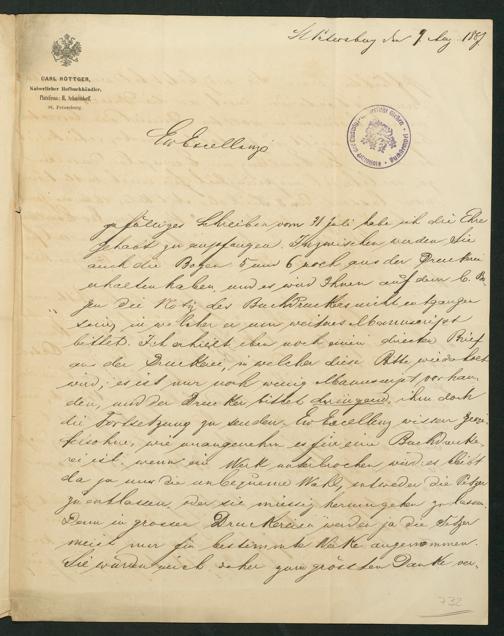 St Petersburg den 9 Aug. 1887
CARL RÖTTGER,
Kaiserlicher Hofbuchhändler,
St. Petersburg.
Ew Excellenz
gefälliges Schreiben vom 21 Juli habe ich die Ehre
gehabt zu empfangen. Inzwischen werden Sie
auch die Bogen 5 und 6 noch aus der Druckerei
erhalten haben, und es wird Ihnen auf dem 6. Bo-
gen die Notiz des Buchdruckers nicht entgangen
sein, in welcher er um weiteres Manuscript
bittet. Ich erhielt eben noch einen Brief
aus der Druckerei, in welcher diese Bitte wiederholt
wird; es ist nur noch wenig Manuscript vorhan-
den, und der Drucker bittet dringend, ihm doch
die Fortsetzung zu senden. Ew Excellenz wissen
wie unangenehm es für eine Buchdrucke-
rei ist, wenn ein Werk unterbrochen wird, es bleibt
da ja nur die unbequeme Wahl, entweder die Setzer
zu entlassen, oder sie müssig herumgehen zu lassen.
Denn in grossen Druckereien werden ja die Setzer
meist nur für bestimmte Werke angenommen.
Sie würden mich daher zum grössten Danke ver-
732